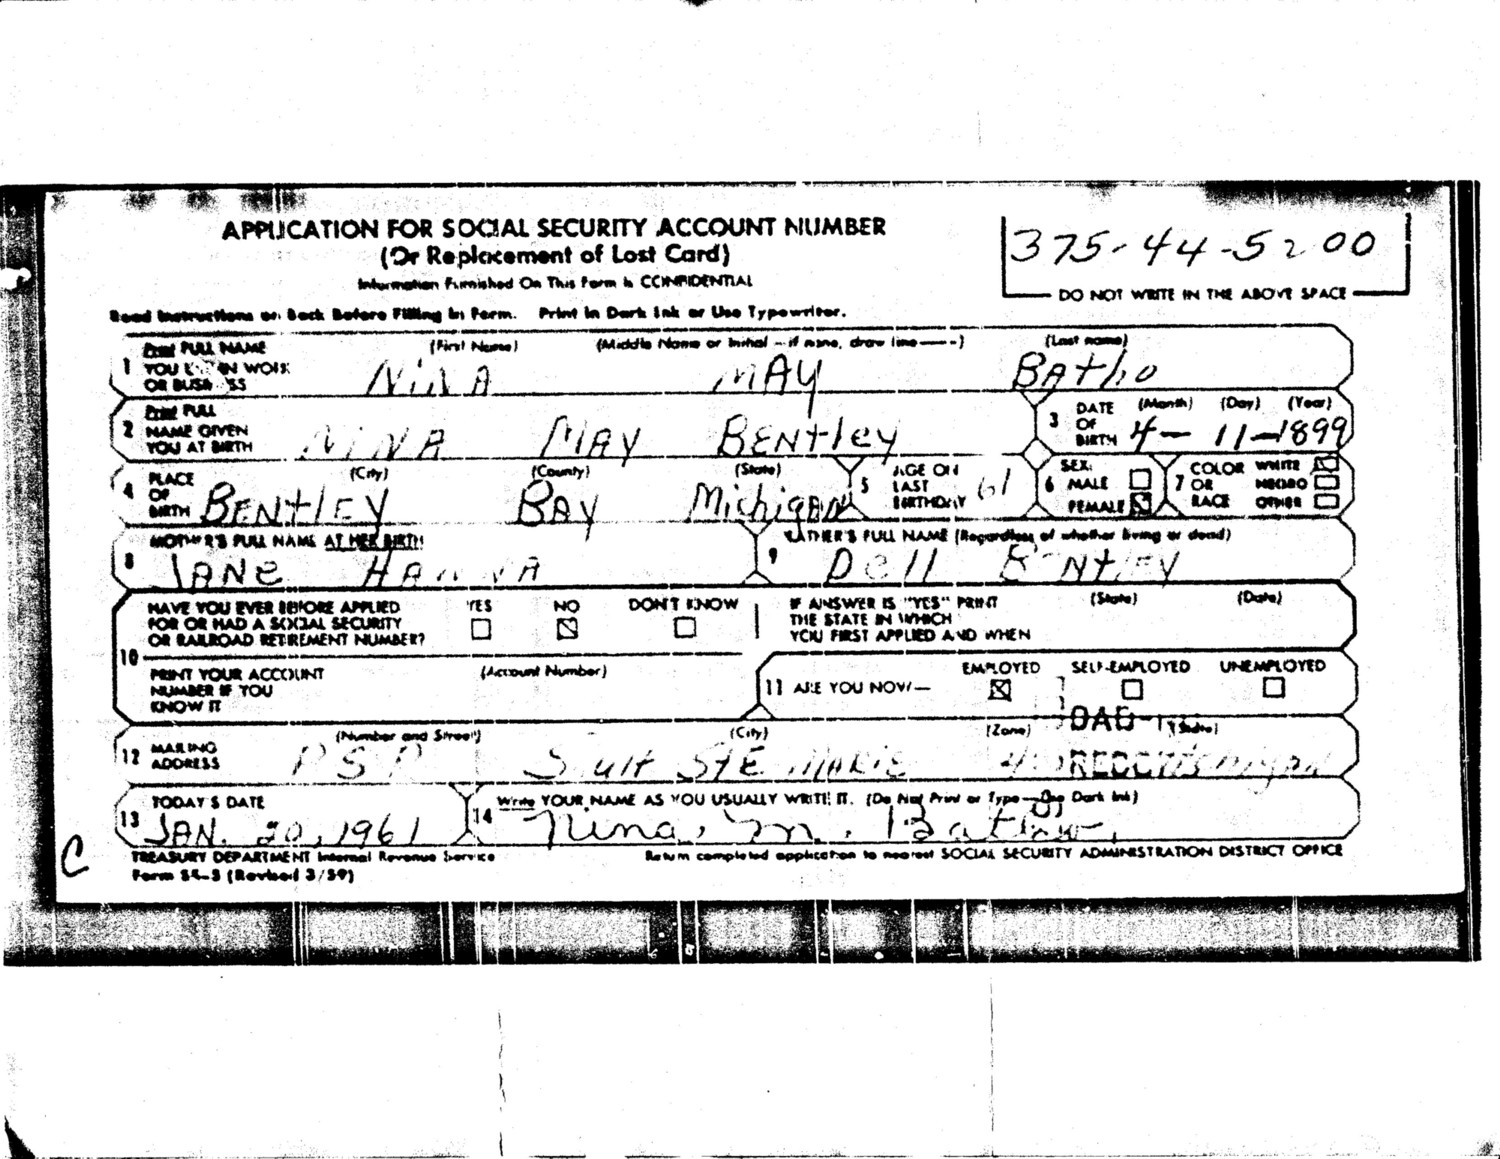 APPLICATION FOR SOCIAL SECURITY ACCOUNT NUMBER
(Or Replacement of Lost Card)
Information Furnished On This Form is CONFIDENTIAL
375-44-5200
DO NOT WRITE IN THE ABOVE SPACE
Read Instructions on Back Before Filling in Form. Print in Dark Ink or Use Typewriter.
1 Print FULL NAME YOU IN WORK OR BUSINESS (First Name) (Middle Name or Initial - if none, draw line -) (Last name)
NINA MAY Batho
2 Print FULL NAME GIVEN YOU AT BIRTH
NINA MAY BENtley
3 DATE OF BIRTH (Month) (Day) (Year)
4-11-1899
4 PLACE OF BIRTH (City) (County) (State)
BENtlEY BAY MichigAN
5 AGE ON LAST BIRTHDAY 61
6 SEX: MALE FEMALE
7 COLOR OR RACE WHITE NEGRO OTHER
8 MOTHER'S FULL NAME AT HER BIRTH
JANE HANNA
9 FATHER'S FULL NAME (Regardless of whether living or dead)
Dell BENtlEY
10 HAVE YOU EVER BEFORE APPLIED FOR OR HAD A SOCIAL SECURITY OR RAILROAD RETIREMENT NUMBER? YES NO DON'T KNOW
IF ANSWER IS "YES" PRINT THE STATE IN WHICH YOU FIRST APPLIED AND WHEN (State) (Date)
PRINT YOUR ACCOUNT NUMBER IF YOU KNOW IT (Account Number)
11 ARE YOU NOW— EMPLOYED SELF-EMPLOYED UNEMPLOYED
12 MAILING ADDRESS (Number and Street) (City) (Zone) (State)
SAult StE MARIE Michigan
13 TODAY'S DATE
JAN. 20, 1961
14 Write YOUR NAME AS YOU USUALLY WRITE IT. (Do Not Print or Type—Use Dark Ink)
Nina M. Batho
C
TREASURY DEPARTMENT Internal Revenue Service
Return completed application to nearest SOCIAL SECURITY ADMINISTRATION DISTRICT OFFICE
Form SS-5 (Revised 3/59)